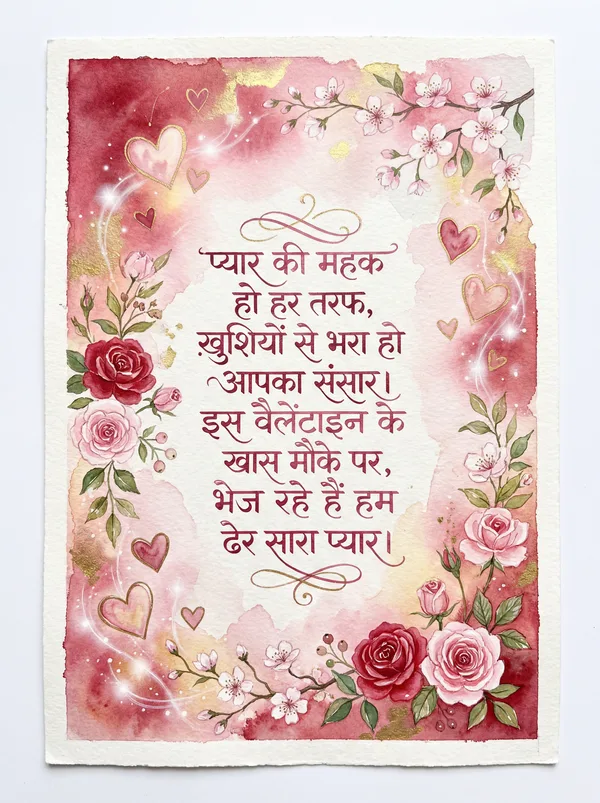 प्यार की महक
हो हर तरफ,
ख़ुशियों से भरा हो
आपका संसार।
इस वैलेंटाइन के
खास मौके पर,
भेज रहे हैं हम
ढेर सारा प्यार।